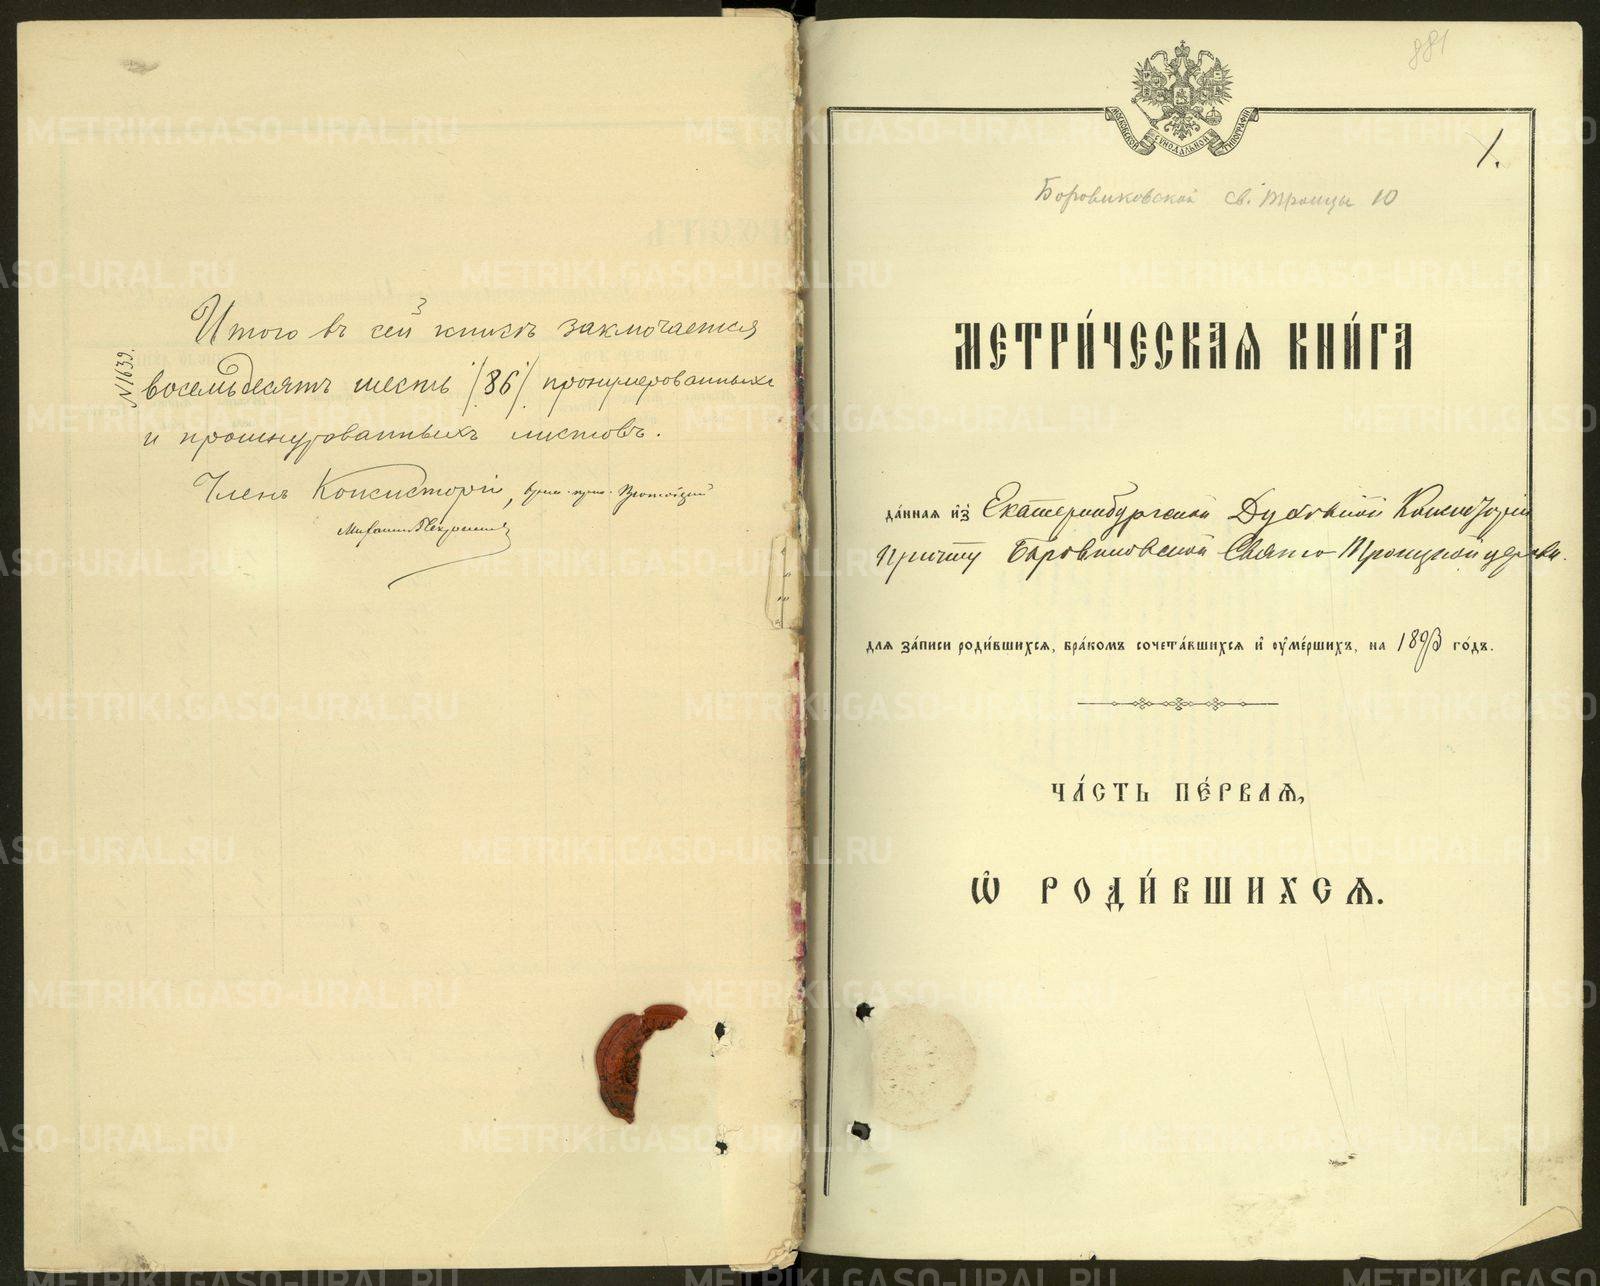 Итого въ сей книгѣ заключается
№1639.
восемьдесятъ шесть /86/ пронумерованныхъ
и прошнурованныхъ листовъ.
Членъ Консисторіи,
881
МОСКОВСКОЙ СѴНОДАЛЬНОЙ ТИПОГРАФІИ
1.
Боровиковской св. Троицы 10
МЕТРИ́ЧЕСКАѦ КНИ́ГА
да́ннаѧ и҆з̾ Екатеринбургской Духовной Консисторіи
Причту Боровиковской Свято Троицкой церкви.
длѧ за́писи роди́вшихсѧ, бра́комъ сочета́вшихсѧ и҆ ᲂу҆ме́ршихъ, на 1893 го́дъ.
ЧА́СТЬ ПЕ́РВАѦ,
Ѽ РОДИ́ВШИХСѦ.
METRIKI.GASO-URAL.RU